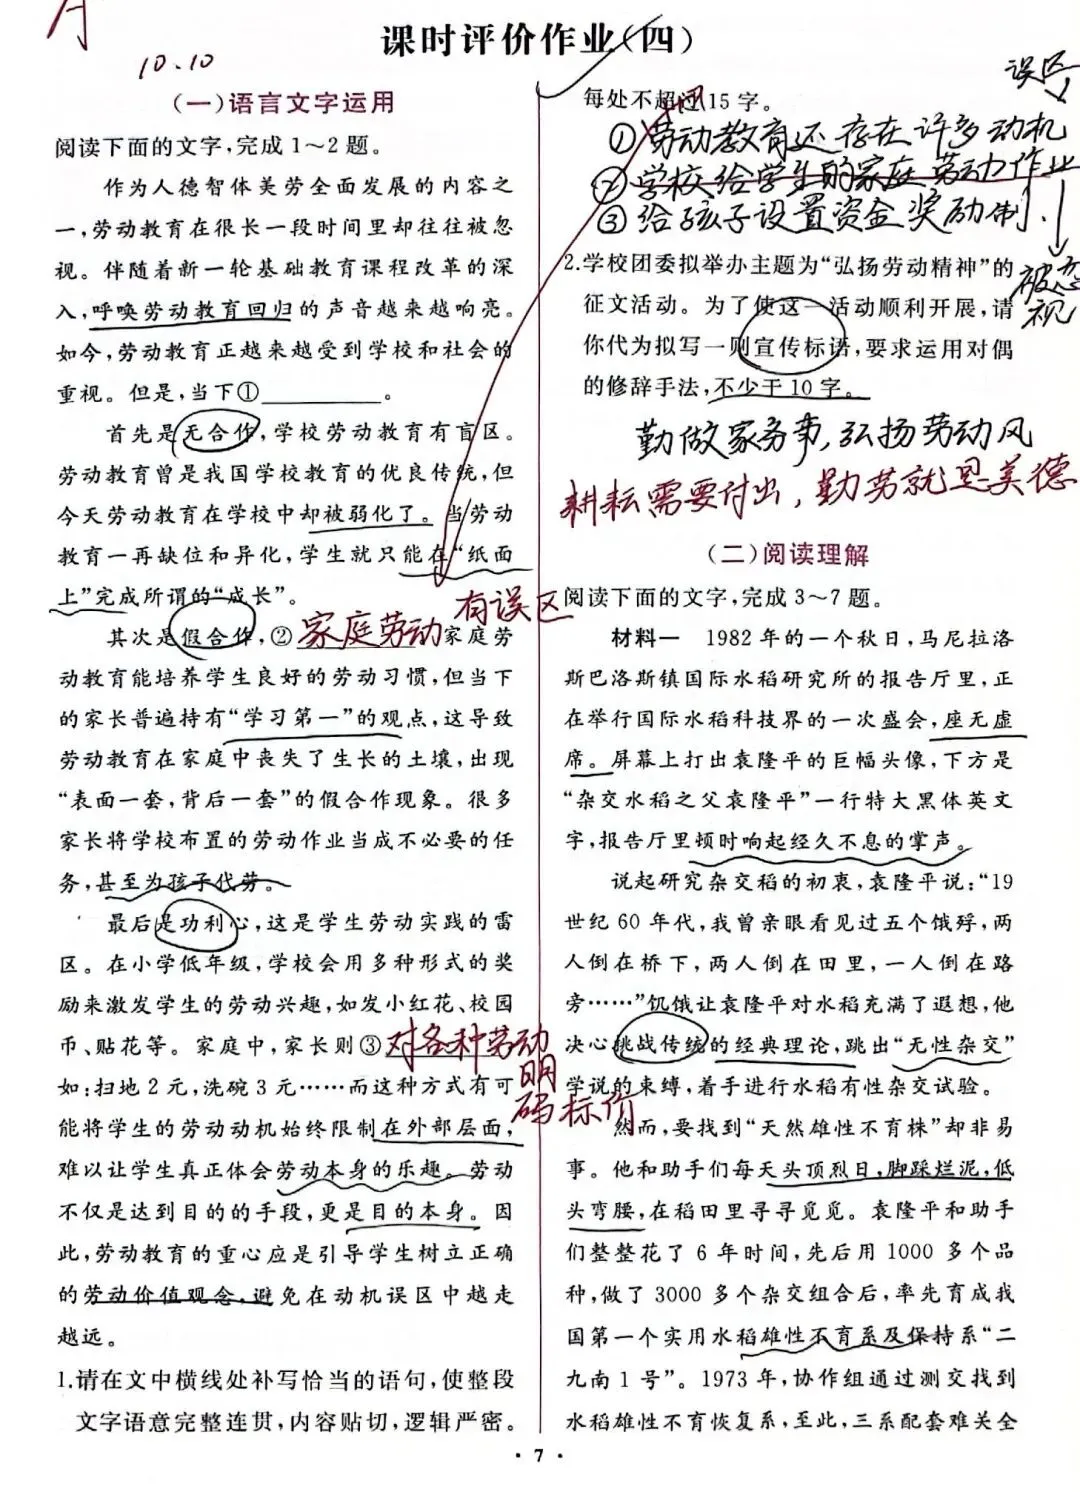 课时评价作业(四)
10.10
(一)语言文字运用
阅读下面的文字,完成1~2题。
作为人德智体美劳全面发展的内容之
一,劳动教育在很长一段时间里却往往被忽
视。伴随着新一轮基础教育课程改革的深
入,呼唤劳动教育回归的声音越来越响亮。
如今,劳动教育正越来越受到学校和社会的
重视。但是,当下①________。
首先是无合作,学校劳动教育有盲区。
劳动教育曾是我国学校教育的优良传统,但
今天劳动教育在学校中却被弱化了。当劳动
教育一再缺位和异化,学生就只能在“纸面
上”完成所谓的“成长”。
其次是假合作,②家庭劳动有误区家庭劳
动教育能培养学生良好的劳动习惯,但当下
的家长普遍持有“学习第一”的观点,这导致
劳动教育在家庭中丧失了生长的土壤,出现
“表面一套,背后一套”的假合作现象。很多
家长将学校布置的劳动作业当成不必要的任
务,甚至为孩子代劳。
最后是功利心,这是学生劳动实践的雷
区。在小学低年级,学校会用多种形式的奖
励来激发学生的劳动兴趣,如发小红花、校园
币、贴花等。家庭中,家长则③对各种劳动
明
码标价
如:扫地2元,洗碗3元……而这种方式有可
能将学生的劳动动机始终限制在外部层面,
难以让学生真正体会劳动本身的乐趣。劳动
不仅是达到目的的手段,更是目的本身。因
此,劳动教育的重心应是引导学生树立正确
的劳动价值观念,避免在动机误区中越走
越远。
1.请在文中横线处补写恰当的语句,使整段
文字语意完整连贯,内容贴切,逻辑严密。
每处不超过15字。
误区
①劳动教育还存在许多动机
②学校给学生的家庭劳动作业
③给孩子设置资金奖励制、
被忽
视
2.学校团委拟举办主题为“弘扬劳动精神”的
征文活动。为了使这一活动顺利开展,请
你代为拟写一则宣传标语,要求运用对偶
的修辞手法,不少于10字。
勤做家务事,弘扬劳动风
耕耘需要付出,勤劳就是美德
(二)阅读理解
阅读下面的文字,完成3~7题。
材料一 1982年的一个秋日,马尼拉洛
斯巴洛斯镇国际水稻研究所的报告厅里,正
在举行国际水稻科技界的一次盛会,座无虚
席。屏幕上打出袁隆平的巨幅头像,下方是
“杂交水稻之父袁隆平”一行特大黑体英文
字,报告厅里顿时响起经久不息的掌声。
说起研究杂交稻的初衷,袁隆平说:“19
世纪60年代,我曾亲眼看见过五个饿殍,两
人倒在桥下,两人倒在田里,一人倒在路
旁……”饥饿让袁隆平对水稻充满了遐想,他
决心挑战传统的经典理论,跳出“无性杂交”
学说的束缚,着手进行水稻有性杂交试验。
然而,要找到“天然雄性不育株”却非易
事。他和助手们每天头顶烈日,脚踩烂泥,低
头弯腰,在稻田里寻寻觅觅。袁隆平和助手
们整整花了6年时间,先后用1000多个品
种,做了3000多个杂交组合后,率先育成我
国第一个实用水稻雄性不育系及保持系“二
九南1号”。1973年,协作组通过测交找到
水稻雄性不育恢复系,至此,三系配套难关全
·7·